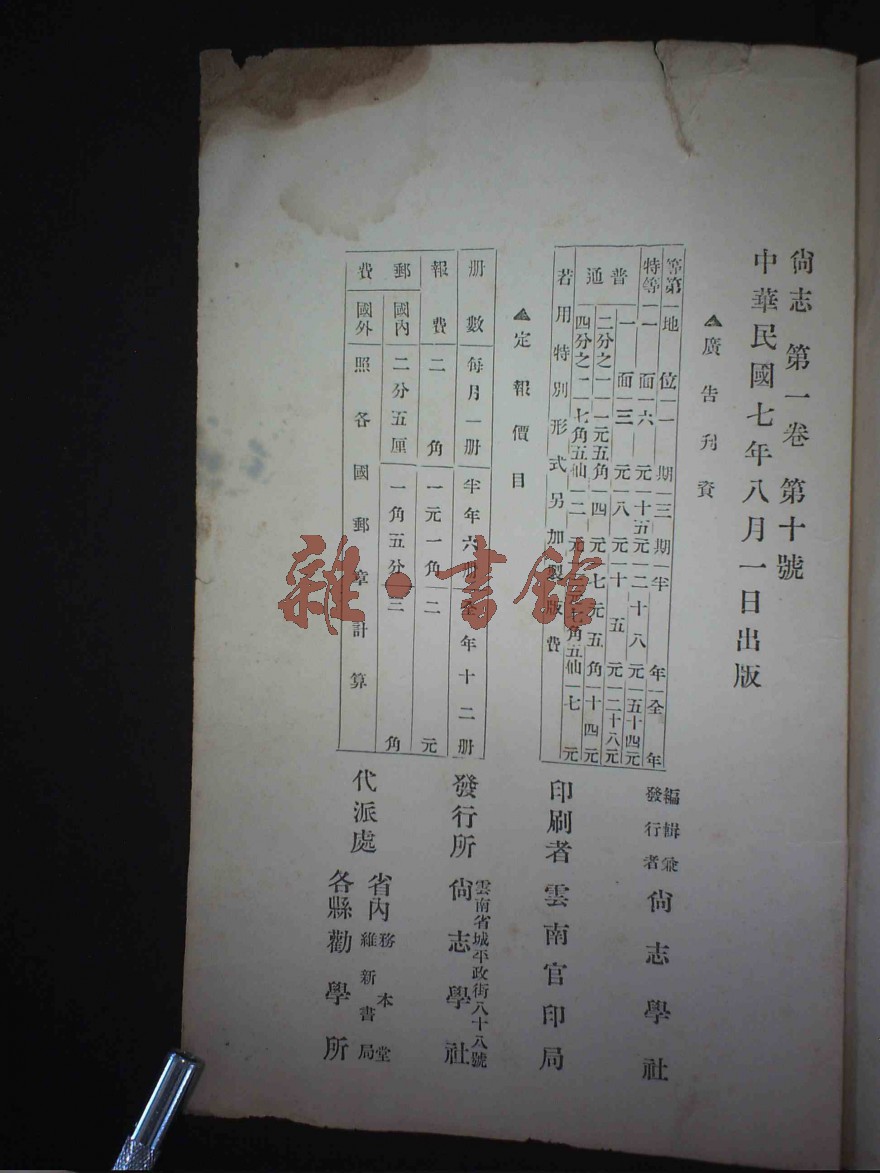 尙志 第一卷 第十號
中華民國七年八月一日出版
▲廣告刋資
等第 地位 一期 三期 半年 全年
特等 一面 六元 十五元 二十八元 五十四元
普通 一面 三元 八元 十五元 二十八元
二分之一 一元五角 四元 七元五角 十四元
四分之一 七角五仙 二元 七角五仙 七元
若用特別形式另加製版費
▲定報價目
册數 每月一册 半年六册 全年十二册
報費 二角 一元一角 二元
郵費 國內 二分五厘 一角五分 三角
國外 照各國郵章計算
編輯兼發行者 尙志學社
印刷者 雲南官印局
發行所 雲南省城平政街八十八號 尙志學社
代派處 省內 務本堂 維新書局
各縣勸學所
雜·書館